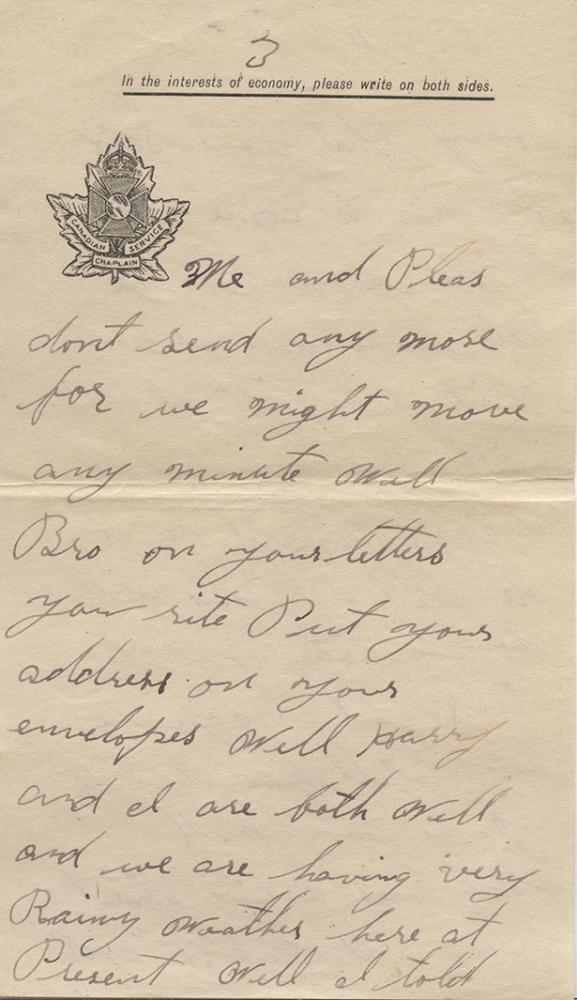 3
In the interests of economy, please write on both sides.
CANADIAN SERVICE
CHAPLAIN
Me and Pleas
dont send any more
for we might move
any minute Well
Bro on your letters
you rite Put your
address on your
envelopes Well Harry
and I are both Well
and we are having very
Rainy Weather here at
Present Well I told